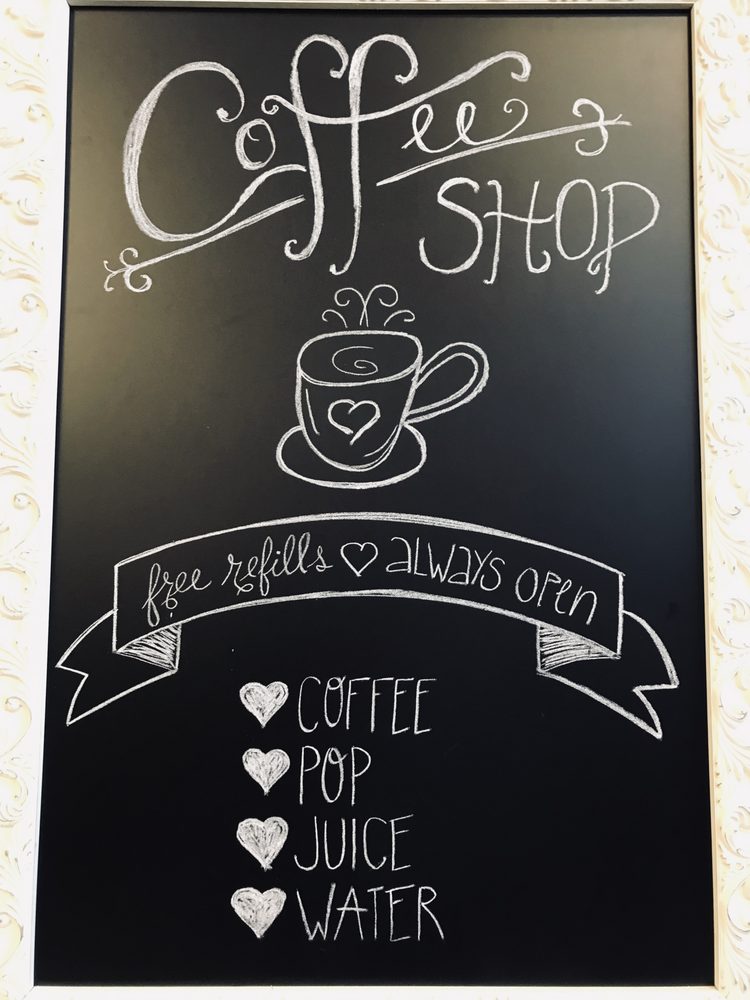 Coffee
SHOP
free refills ♡ ALWAYS OPEN
♥ COFFEE
♥ POP
♥ JUICE
♥ WATER